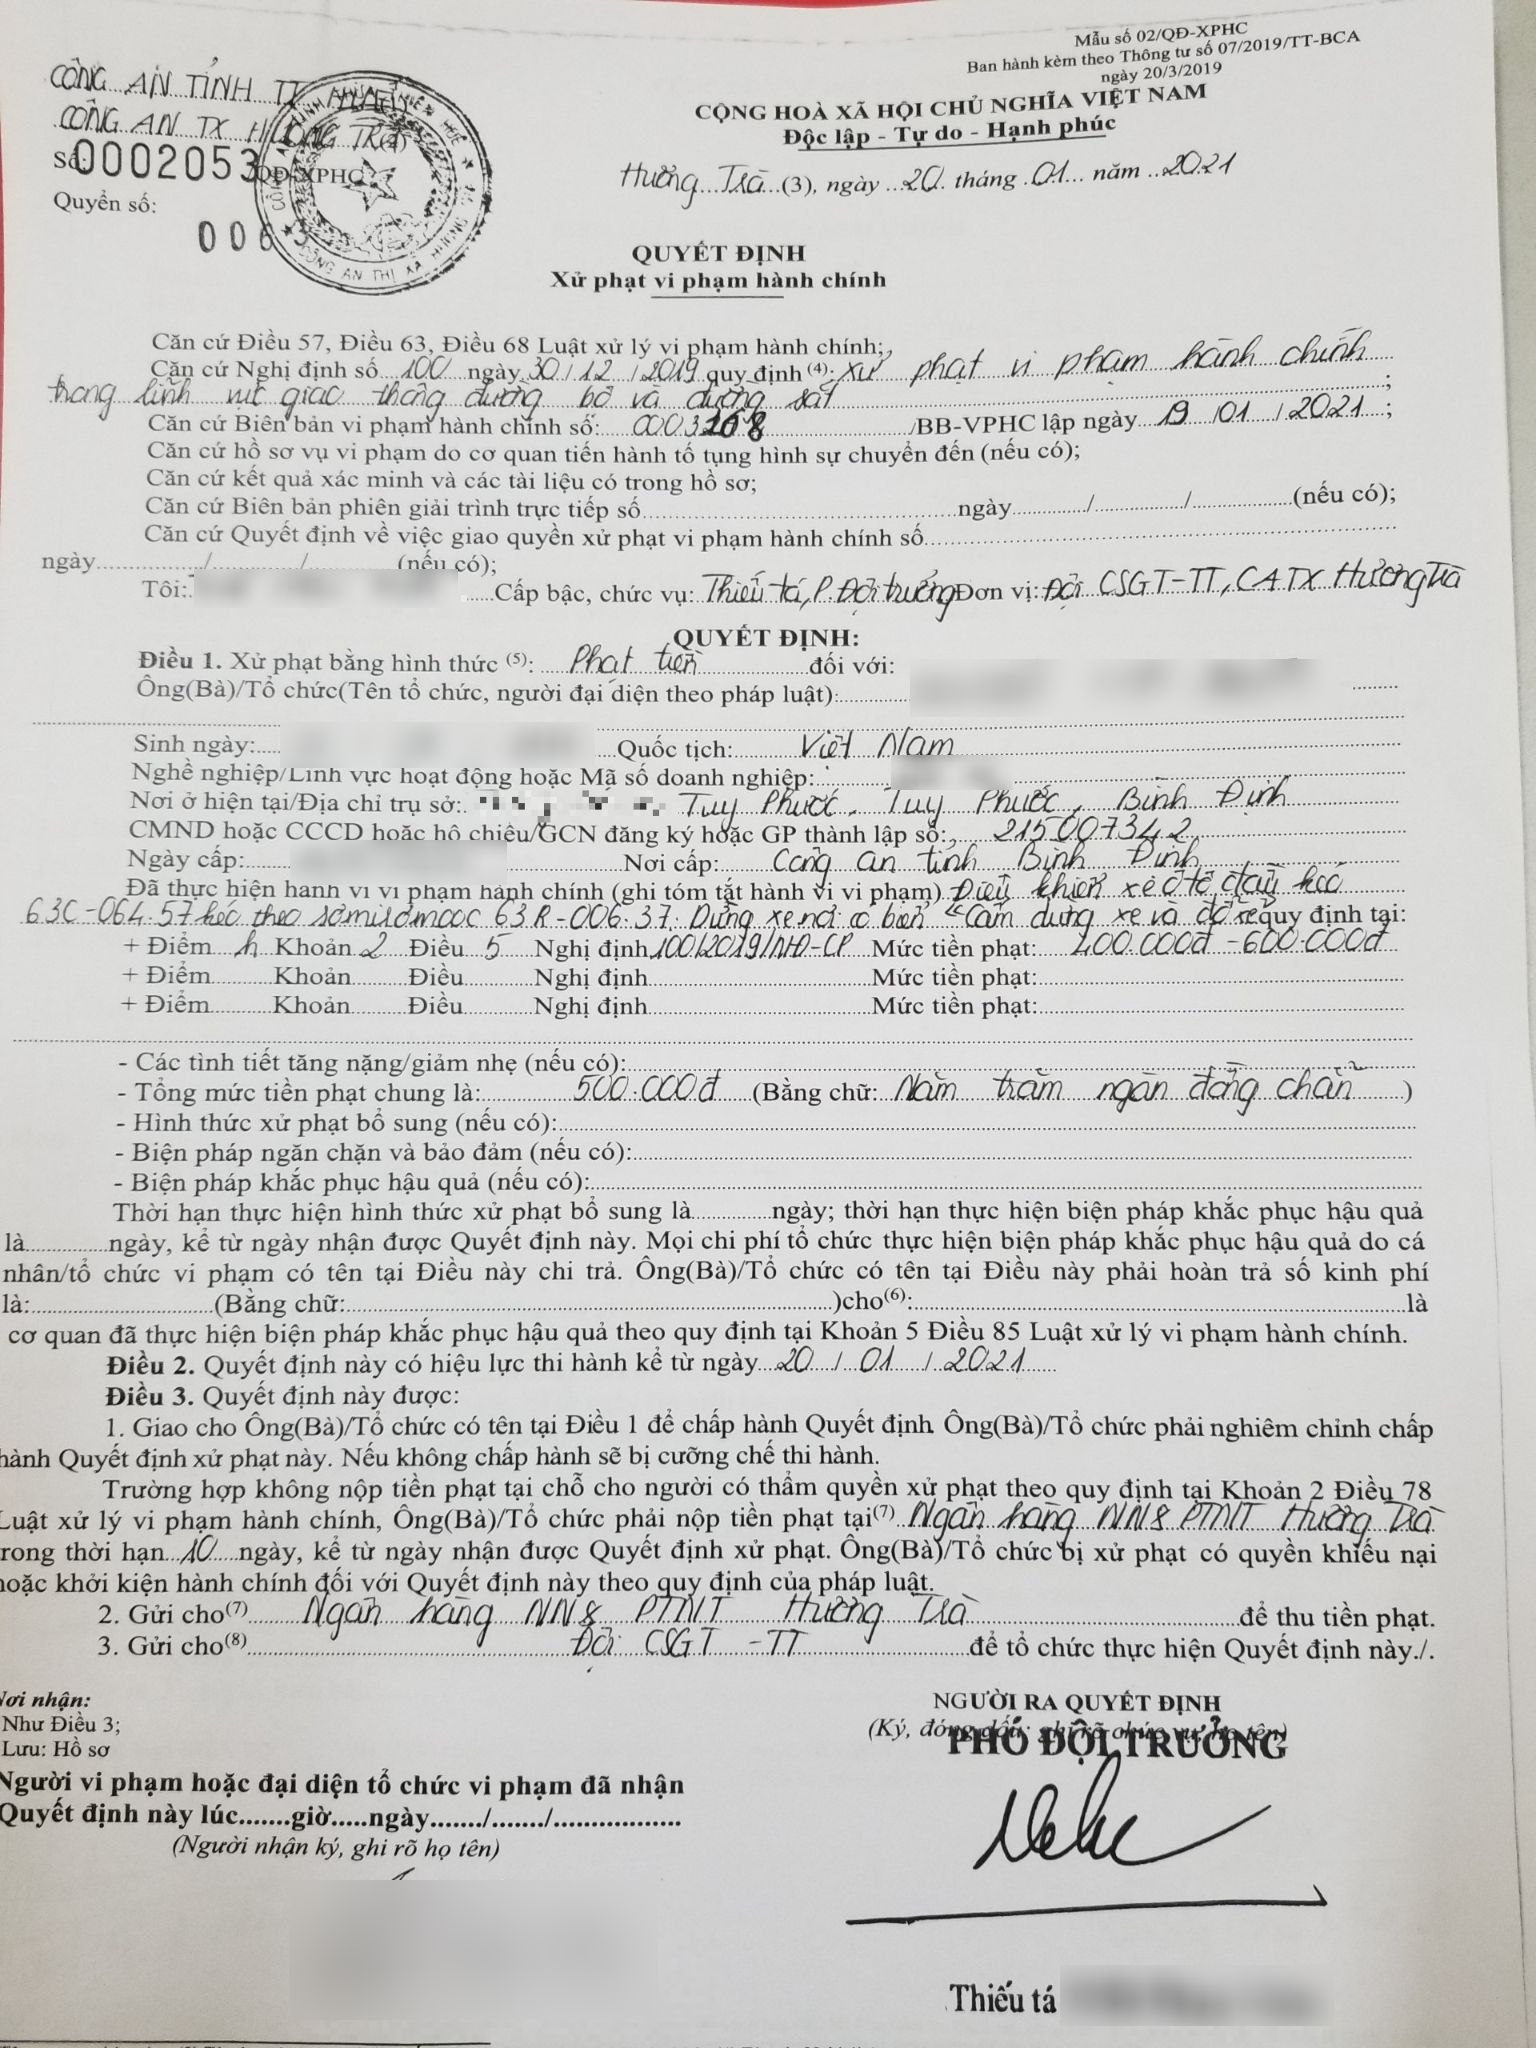 Mẫu số 02/QĐ-XPHC
Ban hành kèm theo Thông tư số 07/2019/TT-BCA
ngày 20/3/2019
CÔNG AN TỈNH TT HUẾ
CÔNG AN TX HƯƠNG TRÀ
Số: 0002053/QĐ-XPHC
Quyển số: 0063
CÔNG AN THỊ XÃ HƯƠNG
CỘNG HOÀ XÃ HỘI CHỦ NGHĨA VIỆT NAM
Độc lập - Tự do - Hạnh phúc
Hương Trà (3), ngày 20 tháng 01 năm 2021
QUYẾT ĐỊNH
Xử phạt vi phạm hành chính
Căn cứ Điều 57, Điều 63, Điều 68 Luật xử lý vi phạm hành chính;
Căn cứ Nghị định số 100 ngày 30/12/2019 quy định (4): xử phạt vi phạm hành chính
trong lĩnh vực giao thông đường bộ và đường sắt ;
Căn cứ Biên bản vi phạm hành chính số: 0003168 /BB-VPHC lập ngày 19/01/2021;
Căn cứ hồ sơ vụ vi phạm do cơ quan tiến hành tố tụng hình sự chuyển đến (nếu có);
Căn cứ kết quả xác minh và các tài liệu có trong hồ sơ;
Căn cứ Biên bản phiên giải trình trực tiếp số............ngày......../......../........(nếu có);
Căn cứ Quyết định về việc giao quyền xử phạt vi phạm hành chính số............
ngày......../......../........(nếu có);
Tôi: Cấp bậc, chức vụ: Thiếu tá, P. Đội trưởng Đơn vị: Đội CSGT-TT, CATX Hương Trà
QUYẾT ĐỊNH:
Điều 1. Xử phạt bằng hình thức (5): Phạt tiền đối với:
Ông(Bà)/Tổ chức(Tên tổ chức, người đại diện theo pháp luật):
Sinh ngày: Quốc tịch: Việt Nam
Nghề nghiệp/Lĩnh vực hoạt động hoặc Mã số doanh nghiệp:
Nơi ở hiện tại/Địa chỉ trụ sở: Tuy Phước, Tuy Phước, Bình Định
CMND hoặc CCCD hoặc hộ chiếu/GCN đăng ký hoặc GP thành lập số: 215007342
Ngày cấp: Nơi cấp: Công an tỉnh Bình Định
Đã thực hiện hành vi vi phạm hành chính (ghi tóm tắt hành vi vi phạm) Điều khiển xe ô tô đầu kéo
63C-064.57 kéo theo sơmirơmooc 63R-006.37. Dừng xe nơi có biển "Cấm dừng xe và đỗ xe" quy định tại:
+ Điểm h Khoản 2 Điều 5 Nghị định 100/2019/NĐ-CP Mức tiền phạt: 400.000đ - 600.000đ
+ Điểm........Khoản........Điều........Nghị định............Mức tiền phạt:............
+ Điểm........Khoản........Điều........Nghị định............Mức tiền phạt:............
- Các tình tiết tăng nặng/giảm nhẹ (nếu có):............
- Tổng mức tiền phạt chung là: 500.000đ (Bằng chữ: Năm trăm ngàn đồng chẵn )
- Hình thức xử phạt bổ sung (nếu có):............
- Biện pháp ngăn chặn và bảo đảm (nếu có):............
- Biện pháp khắc phục hậu quả (nếu có):............
Thời hạn thực hiện hình thức xử phạt bổ sung là........ngày; thời hạn thực hiện biện pháp khắc phục hậu quả
là........ngày, kể từ ngày nhận được Quyết định này. Mọi chi phí tổ chức thực hiện biện pháp khắc phục hậu quả do cá
nhân/tổ chức vi phạm có tên tại Điều này chi trả. Ông(Bà)/Tổ chức có tên tại Điều này phải hoàn trả số kinh phí
là:............(Bằng chữ:............)cho(6):............là
cơ quan đã thực hiện biện pháp khắc phục hậu quả theo quy định tại Khoản 5 Điều 85 Luật xử lý vi phạm hành chính.
Điều 2. Quyết định này có hiệu lực thi hành kể từ ngày 20/01/2021
Điều 3. Quyết định này được:
1. Giao cho Ông(Bà)/Tổ chức có tên tại Điều 1 để chấp hành Quyết định. Ông(Bà)/Tổ chức phải nghiêm chỉnh chấp
hành Quyết định xử phạt này. Nếu không chấp hành sẽ bị cưỡng chế thi hành.
Trường hợp không nộp tiền phạt tại chỗ cho người có thẩm quyền xử phạt theo quy định tại Khoản 2 Điều 78
Luật xử lý vi phạm hành chính, Ông(Bà)/Tổ chức phải nộp tiền phạt tại(7) Ngân hàng NN& PTNT Hương Trà
trong thời hạn 10 ngày, kể từ ngày nhận được Quyết định xử phạt. Ông(Bà)/Tổ chức bị xử phạt có quyền khiếu nại
hoặc khởi kiện hành chính đối với Quyết định này theo quy định của pháp luật.
2. Gửi cho(7) Ngân hàng NN& PTNT Hương Trà để thu tiền phạt.
3. Gửi cho(8) Đội CSGT -TT để tổ chức thực hiện Quyết định này./.
Nơi nhận:
Như Điều 3;
Lưu: Hồ sơ
Người vi phạm hoặc đại diện tổ chức vi phạm đã nhận
Quyết định này lúc.......giờ.....ngày......./......./.................
(Người nhận ký, ghi rõ họ tên)
NGƯỜI RA QUYẾT ĐỊNH
(Ký, đóng dấu; ghi rõ chức vụ, họ tên)
PHÓ ĐỘI TRƯỞNG
Thiếu tá